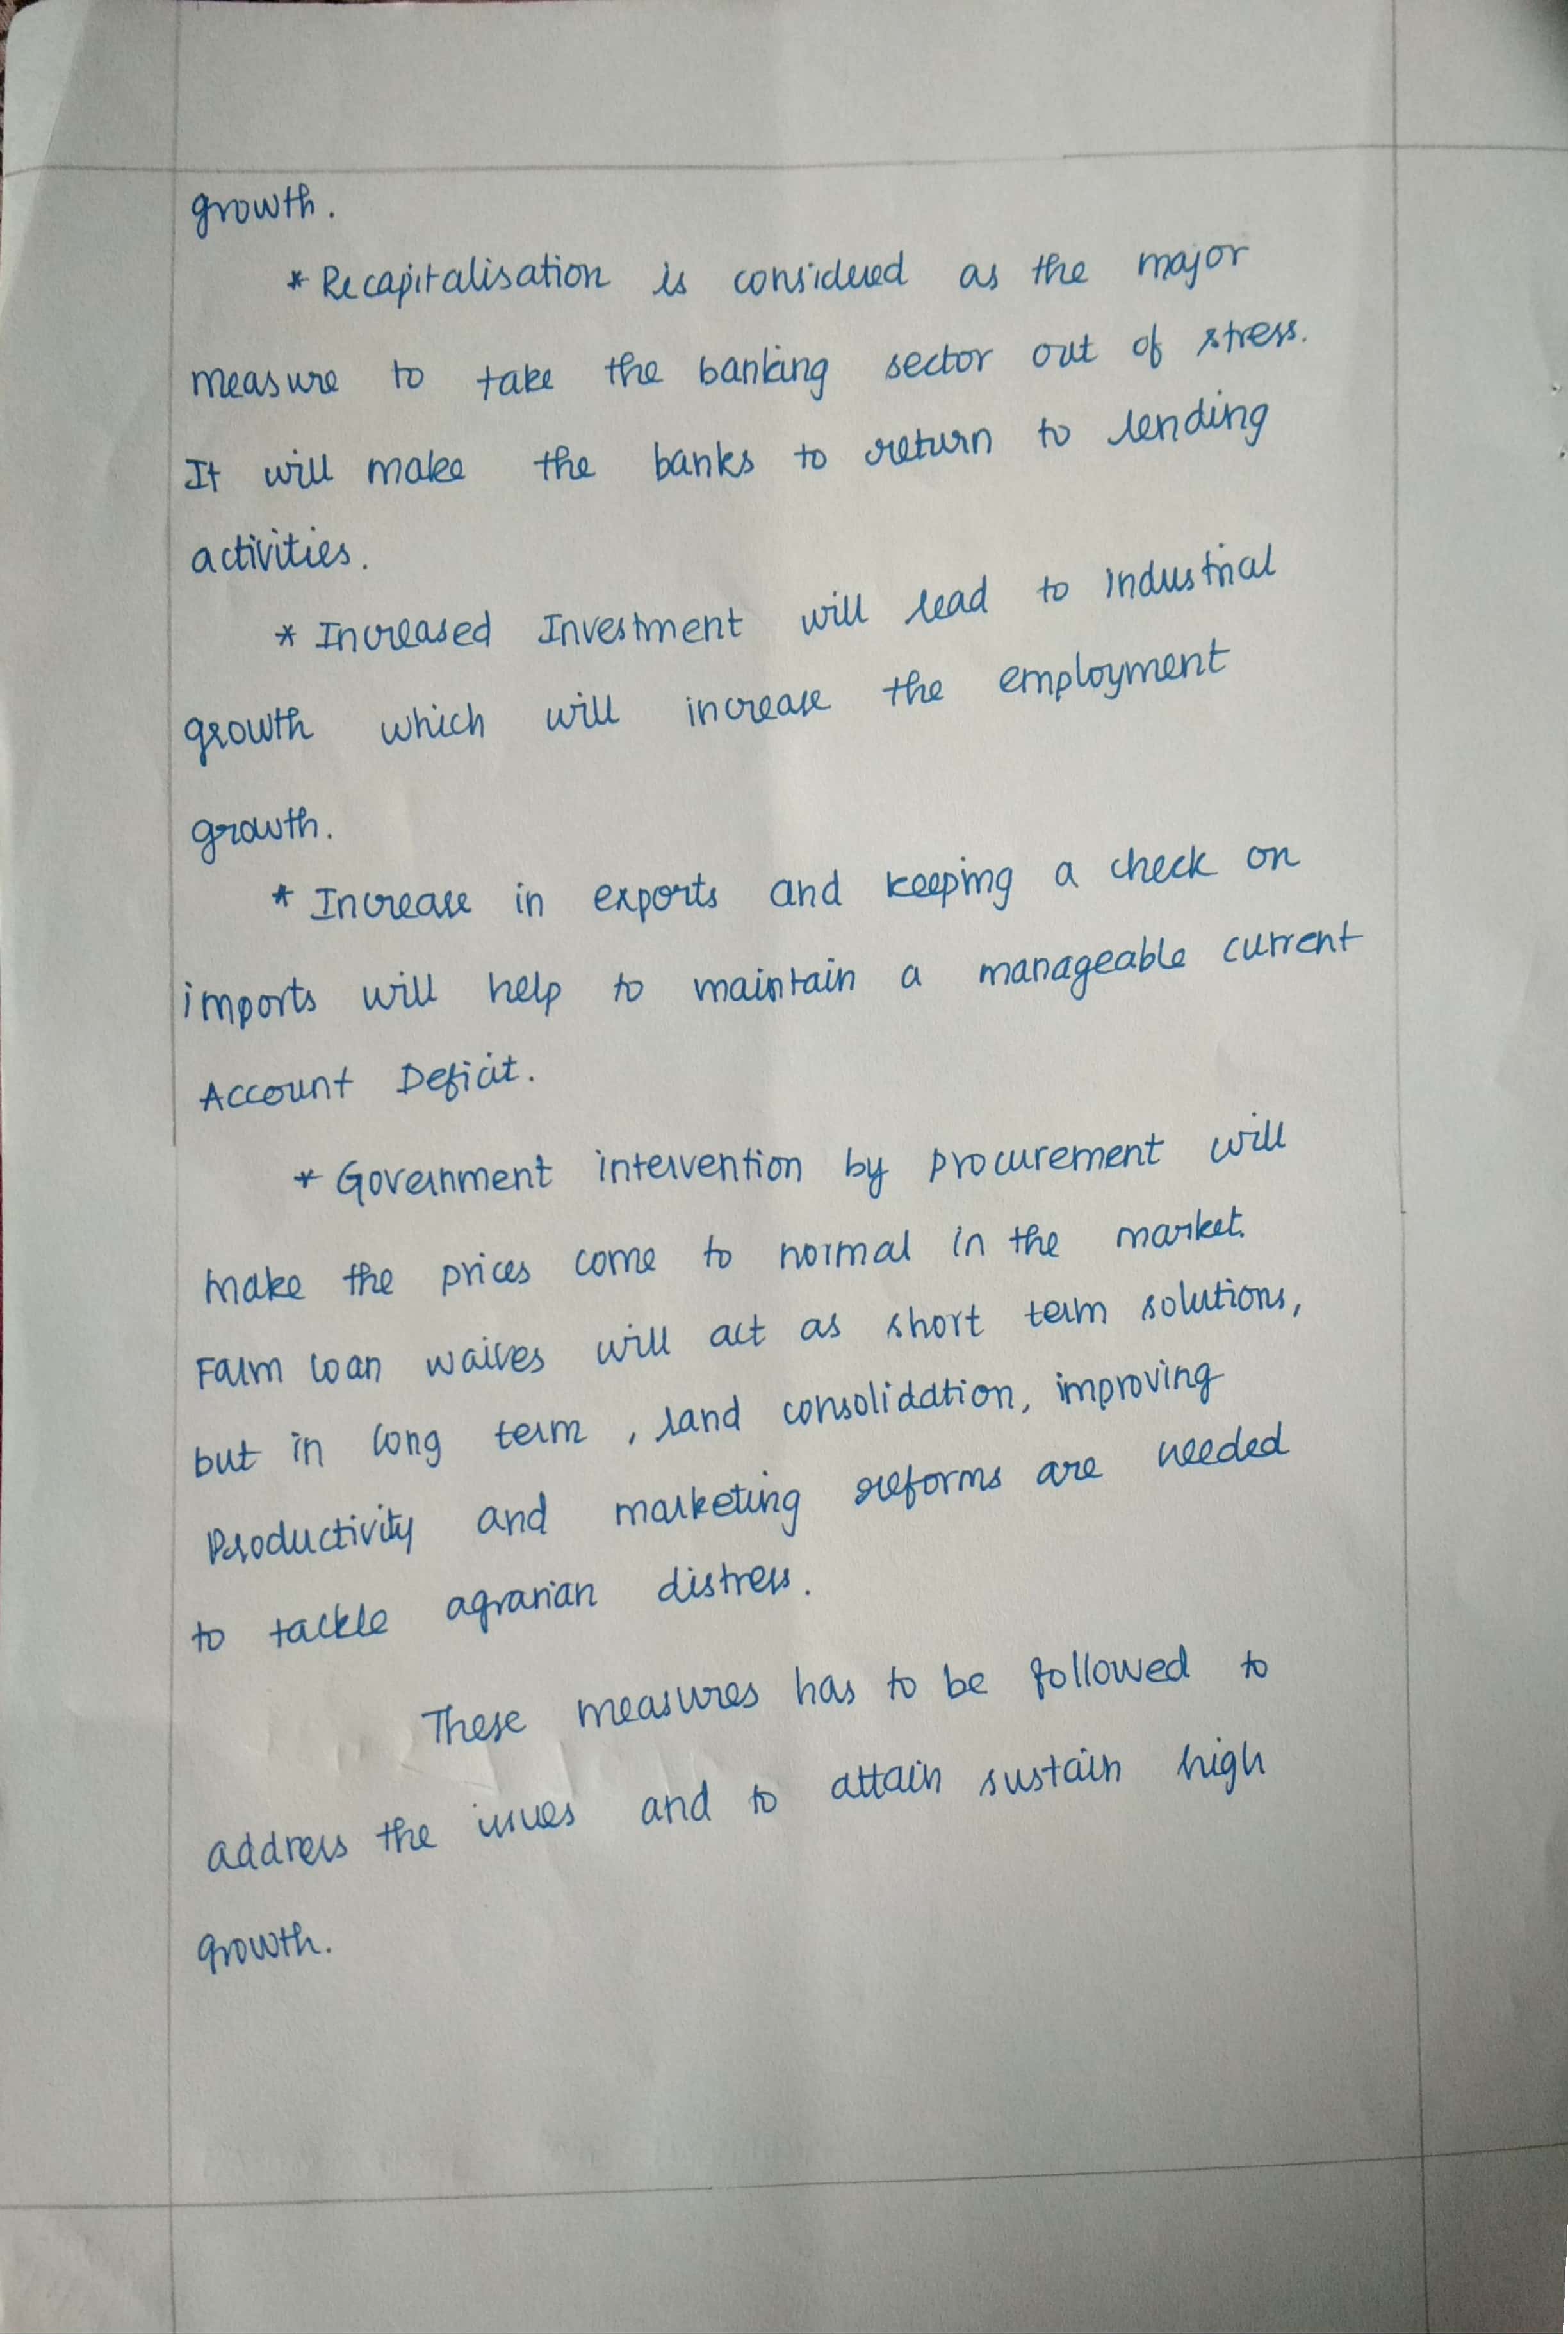 growth.
* Recapitalisation is considered as the major
measure to take the banking sector out of stress.
It will make the banks to return to lending
activities.
* Increased Investment will lead to industrial
growth which will increase the employment
growth.
* Increase in exports and keeping a check on
imports will help to maintain a manageable current
Account Deficit.
* Government intervention by procurement will
make the prices come to normal in the market.
Farm loan waives will act as short term solutions,
but in long term , land consolidation, improving
Productivity and marketing reforms are needed
to tackle agrarian distress.
These measures has to be followed to
address the issues and to attain sustain high
growth.